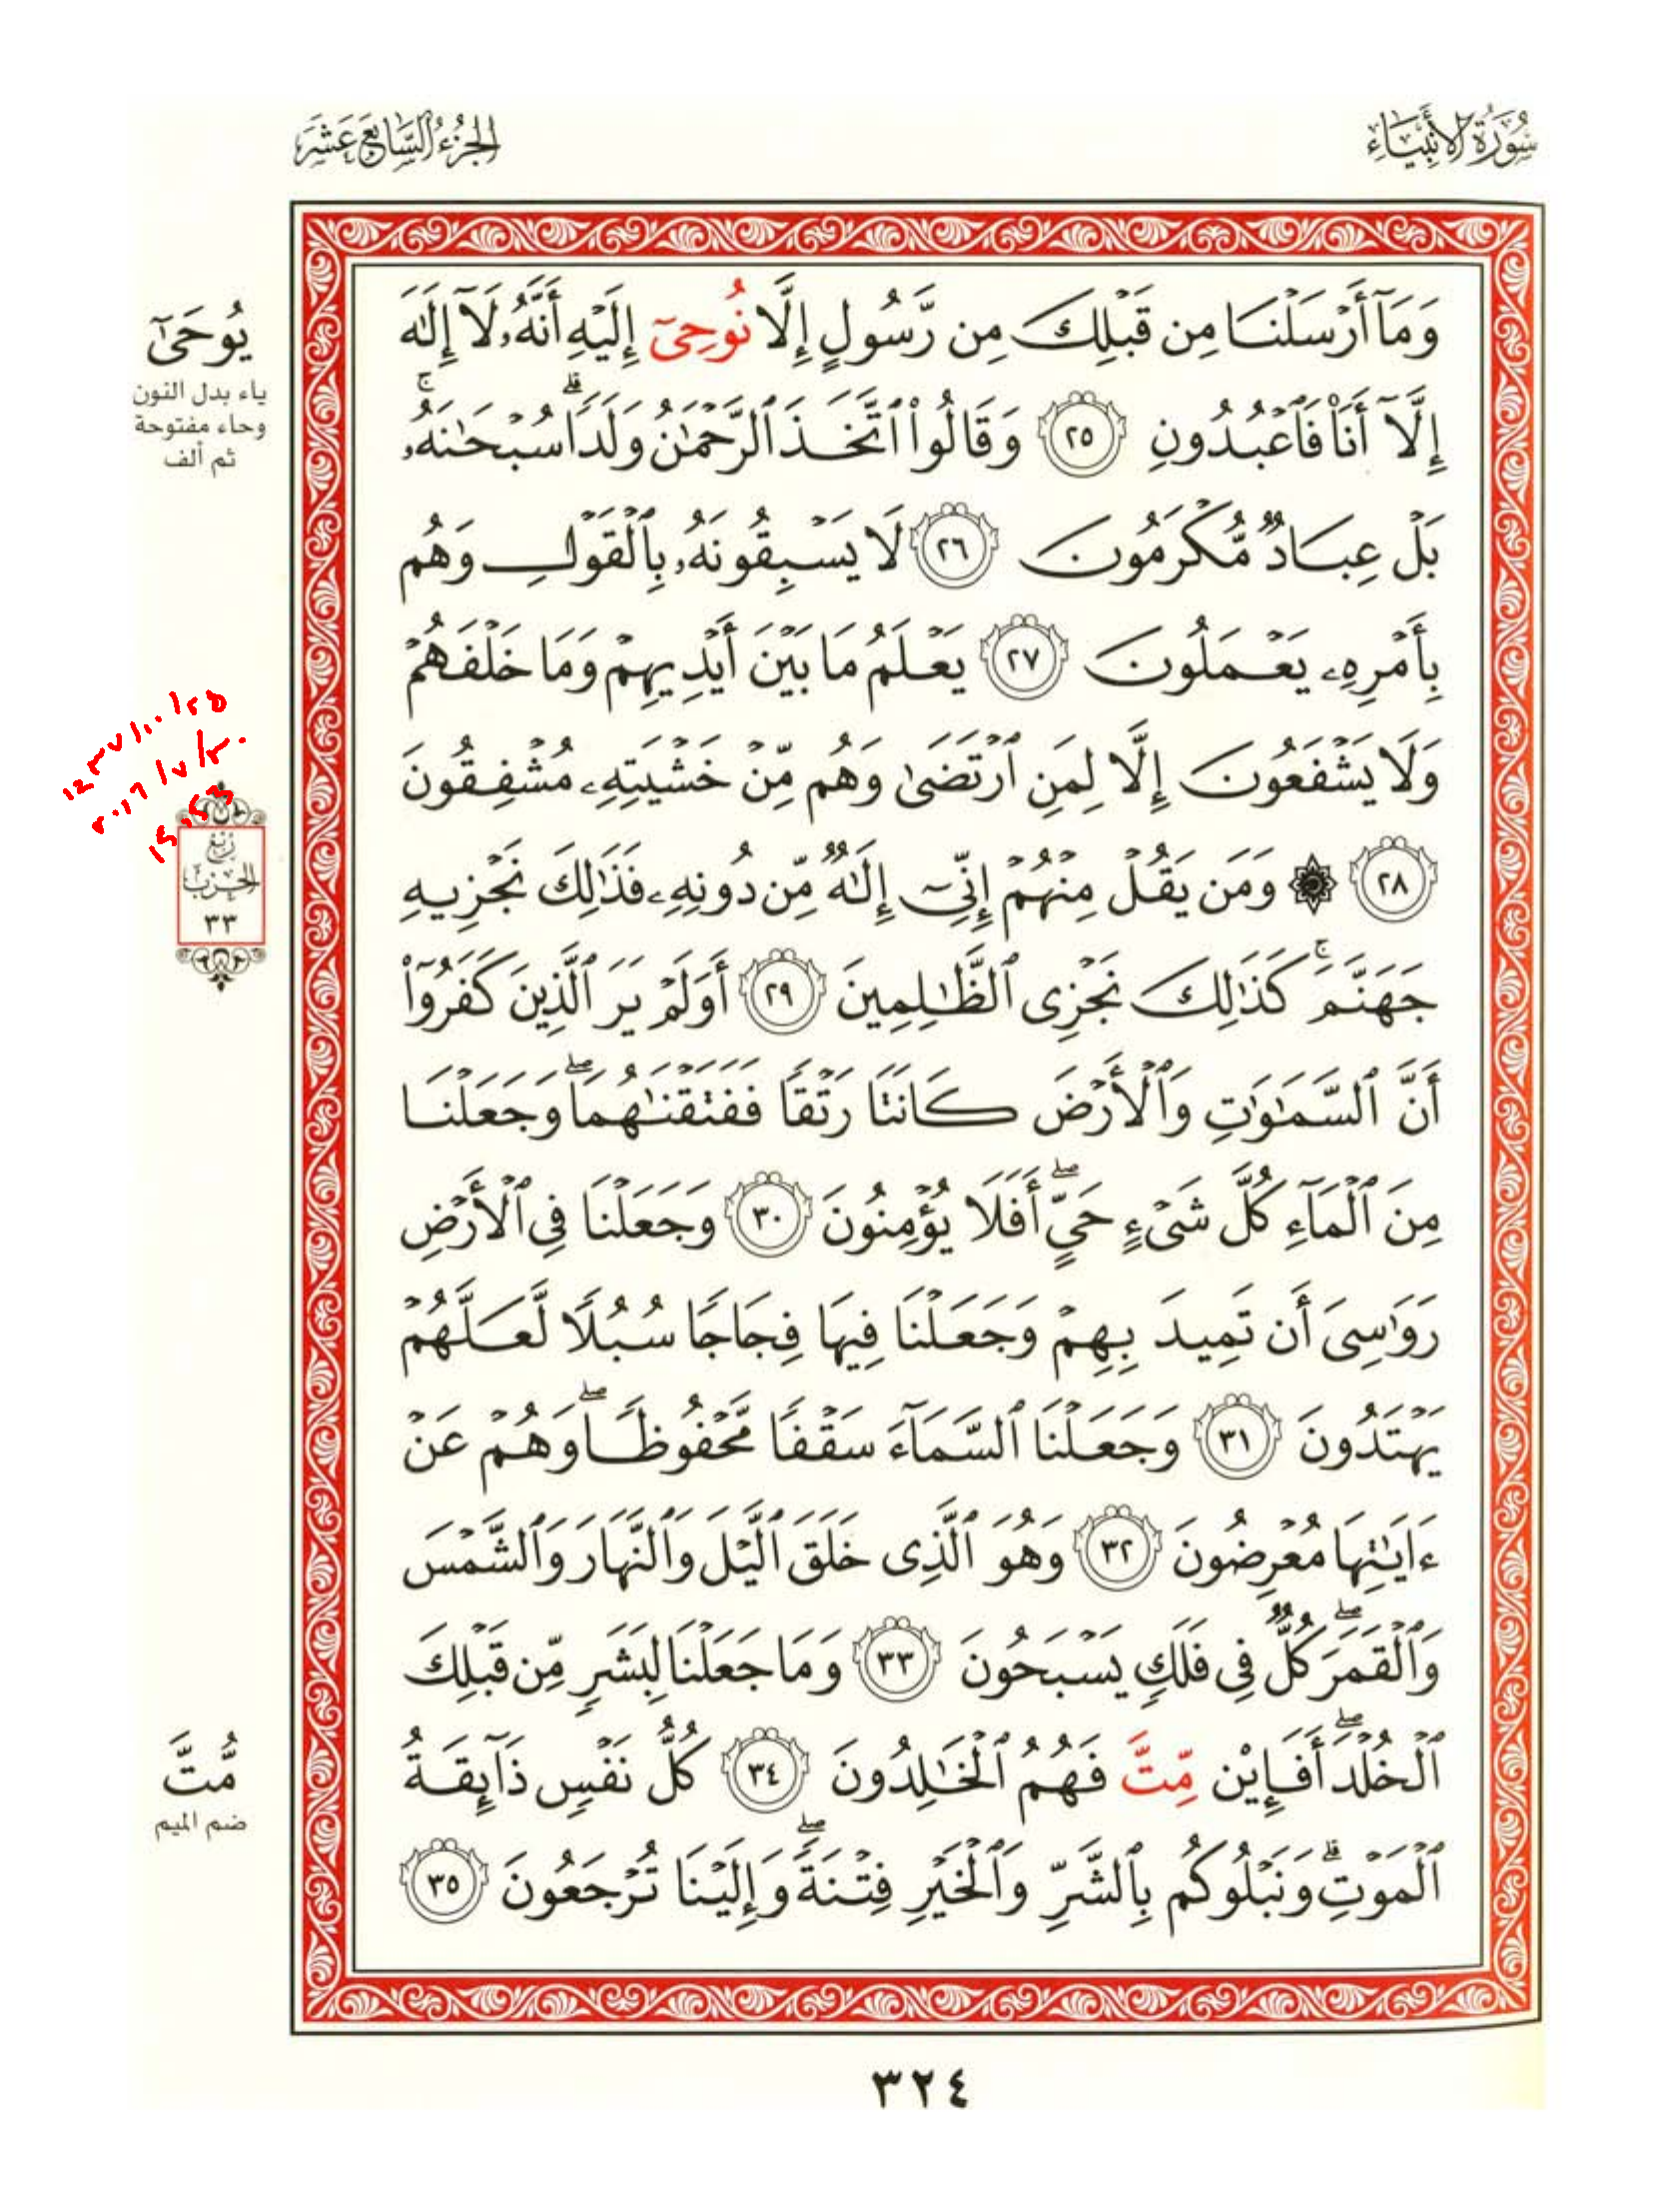 سُورَةُ الأَنبِيَاء
الجُزْءُ السَّابِعَ عَشَرَ
وَمَآ أَرْسَلْنَا مِن قَبْلِكَ مِن رَّسُولٍ إِلَّا نُوحِىٓ إِلَيْهِ أَنَّهُۥ لَآ إِلَٰهَ
إِلَّآ أَنَا۠ فَٱعْبُدُونِ ٢٥ وَقَالُوا۟ ٱتَّخَذَ ٱلرَّحْمَٰنُ وَلَدًا ۗ سُبْحَٰنَهُۥ ۚ
بَلْ عِبَادٌ مُّكْرَمُونَ ٢٦ لَا يَسْبِقُونَهُۥ بِٱلْقَوْلِ وَهُم
بِأَمْرِهِۦ يَعْمَلُونَ ٢٧ يَعْلَمُ مَا بَيْنَ أَيْدِيهِمْ وَمَا خَلْفَهُمْ
وَلَا يَشْفَعُونَ إِلَّا لِمَنِ ٱرْتَضَىٰ وَهُم مِّنْ خَشْيَتِهِۦ مُشْفِقُونَ
٢٨ ۞ وَمَن يَقُلْ مِنْهُمْ إِنِّىٓ إِلَٰهٌ مِّن دُونِهِۦ فَذَٰلِكَ نَجْزِيهِ
جَهَنَّمَ ۚ كَذَٰلِكَ نَجْزِى ٱلظَّٰلِمِينَ ٢٩ أَوَلَمْ يَرَ ٱلَّذِينَ كَفَرُوٓا۟
أَنَّ ٱلسَّمَٰوَٰتِ وَٱلْأَرْضَ كَانَتَا رَتْقًا فَفَتَقْنَٰهُمَا ۖ وَجَعَلْنَا
مِنَ ٱلْمَآءِ كُلَّ شَىْءٍ حَىٍّ ۖ أَفَلَا يُؤْمِنُونَ ٣٠ وَجَعَلْنَا فِى ٱلْأَرْضِ
رَوَٰسِىَ أَن تَمِيدَ بِهِمْ وَجَعَلْنَا فِيهَا فِجَاجًا سُبُلًا لَّعَلَّهُمْ
يَهْتَدُونَ ٣١ وَجَعَلْنَا ٱلسَّمَآءَ سَقْفًا مَّحْفُوظًا ۖ وَهُمْ عَنْ
ءَايَٰتِهَا مُعْرِضُونَ ٣٢ وَهُوَ ٱلَّذِى خَلَقَ ٱلَّيْلَ وَٱلنَّهَارَ وَٱلشَّمْسَ
وَٱلْقَمَرَ ۖ كُلٌّ فِى فَلَكٍ يَسْبَحُونَ ٣٣ وَمَا جَعَلْنَا لِبَشَرٍ مِّن قَبْلِكَ
ٱلْخُلْدَ ۖ أَفَإِي۟ن مِّتَّ فَهُمُ ٱلْخَٰلِدُونَ ٣٤ كُلُّ نَفْسٍ ذَآئِقَةُ
ٱلْمَوْتِ ۗ وَنَبْلُوكُم بِٱلشَّرِّ وَٱلْخَيْرِ فِتْنَةً ۖ وَإِلَيْنَا تُرْجَعُونَ ٣٥
يُوحَىٰٓ
ياء بدل النون
وحاء مفتوحة
ثم ألف
رُبْعُ
الحِزْب
٣٣
مُّتَّ
ضم الميم
٣٢٤